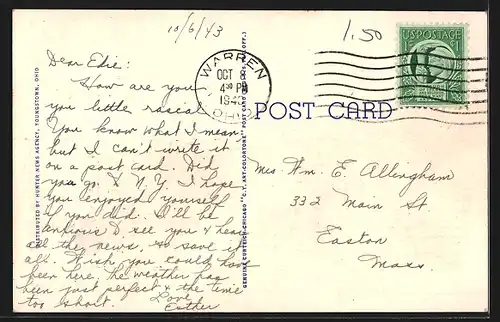 10/6/43
1.50
Dear Edie:
How are you,
you little rascal
You know what I mean
but I can't write it
on a post card. Did
you go to N.Y. I hope
you enjoyed yourself
if you did. I'll be
anxious to see you & hear
all the news, so save it
all. Wish you could have
been here, the weather has
been just perfect & the time
too short.
Love
Esther
DISTRIBUTED BY HUNTER NEWS AGENCY, YOUNGSTOWN, OHIO
GENUINE CURTEICH-CHICAGO "C.T. ART-COLORTONE" POST CARD
WARREN
OCT 8
4 30 PM
OHIO
U.S. POSTAGE
1¢
POST CARD
Mrs. Wm. E. Allingham
332 Main St
Easton
Mass.